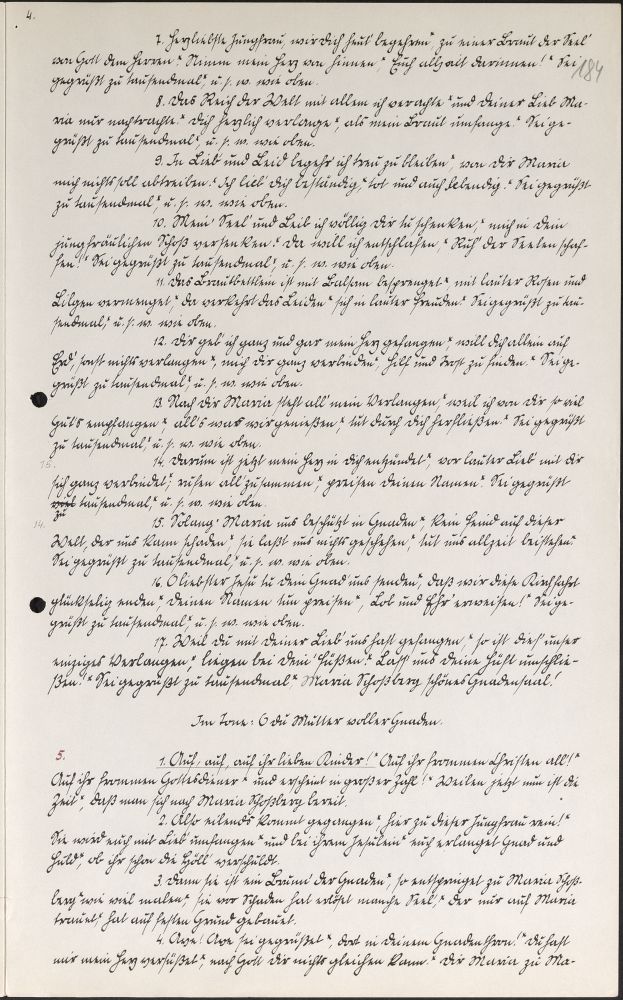 4.
184
7. Herzliebste Jungfrau, wir dich heut' begehren, zu einer Braut der Seel'
von Gott dem Herren. Nimm mein Herz von hinnen, Euch allzeit darinnen! Sei
gegrüßt zu tausendmal, u. s. w. wie oben.
8. Das Reich der Welt mit allem ich verachte und deiner Lieb Ma-
ria nur nachtrachte. Dich herzlich verlange, als mein Braut umfange. Sei ge-
grüßt zu tausendmal, u. s. w. wie oben.
9. In Lieb' und Leid begehr' ich treu zu bleiben, von dir Maria
mich nichts soll abtreiben. Ich lieb' dich beständig, tot und auch lebendig. Sei gegrüßt
zu tausendmal, u. s. w. wie oben.
10. Mein' Seel' und Leib ich völlig dir tu schenken, mich in dein
jungfräulichen Schoß versenken. Da will ich entschlafen, Ruh' der Seelen schaf-
fen! Sei gegrüßt zu tausendmal, u. s. w. wie oben.
11. Das Brautbettlein ist mit Balsam besprenget, mit lauter Rosen und
Lilgen vermenget, da verkehrt das Leiden sich in lauter Freuden. Sei gegrüßt zu tau-
sendmal, u. s. w. wie oben.
12. Dir geb' ich ganz und gar mein Herz gefangen, will dich allein auf
Erd', sonst nichts verlangen, mich dir ganz verbinden, Hilf und Trost zu finden. Sei ge-
grüßt zu tausendmal, u. s. w. wie oben.
13. Nach dir Maria steht all' mein Verlangen, weil ich von dir so viel
Gut's empfangen, all's was wir genießen, tut durch dich herfließen. Sei gegrüßt
zu tausendmal, u. s. w. wie oben.
15. 14. Darum ist jetzt mein Herz in dich entzündet, vor lauter Lieb' mit dir
sich ganz verbindet, rufen all' zusammen, preisen deinen Namen. Sei gegrüßt
zu tausendmal, u. s. w. wie oben.
14. 15. Solang' Maria uns beschützt in Gnaden, kein Feind auf dieser
Welt, der uns kann schaden, sie laßt uns nichts geschehen, tut uns allzeit beistehen.
Sei gegrüßt zu tausendmal, u. s. w. wie oben.
16. O liebster Jesu tu dein Gnad uns senden, daß wir diese Kirchfahrt
glückselig enden, deinen Namen tun preisen, Lob und Ehr' erweisen! Sei ge-
grüßt zu tausendmal, u. s. w. wie oben.
17. Weil du mit deiner Lieb' uns hast gefangen, so ist dies' unser
einziges Verlangen, liegen bei dein' Füßen. Lass' uns deine Huld umschlie-
ßen! Sei gegrüßt zu tausendmal, Maria Schoßberg schönes Gnadensaal!
Im Tone: O du Mutter voller Gnaden.
5. 1. Auf, auf, auf ihr lieben Kinder! Auf ihr frommen Christen all!
Auf ihr frommen Gottesdiener und erscheint in großer Zahl! Weilen jetzt nun ist die
Zeit, daß man sich nach Maria Schoßberg bereit.
2. Also eilends kommt gegangen, hier zu dieser Jungfrau rein!
Sie wird euch mit Lieb' umfangen und bei ihrem Jesulein euch erlanget Gnad und
Huld, ob ihr schon die Höll' verschuldt.
3. Denn sie ist ein Brunn' der Gnaden, so entspringet zu Maria Schoß-
berg, wie viel malen, sie vor Schaden hat erlöset manche Seel', der nur auf Maria
trauet, hat auf festen Grund gebauet.
4. Ave! Ave sei gegrüßet, dort in deinem Gnadenthron! Du hast
mir mein Herz versüßet, nach Gott dir nichts gleichen kann. Dir Maria zu Ma-